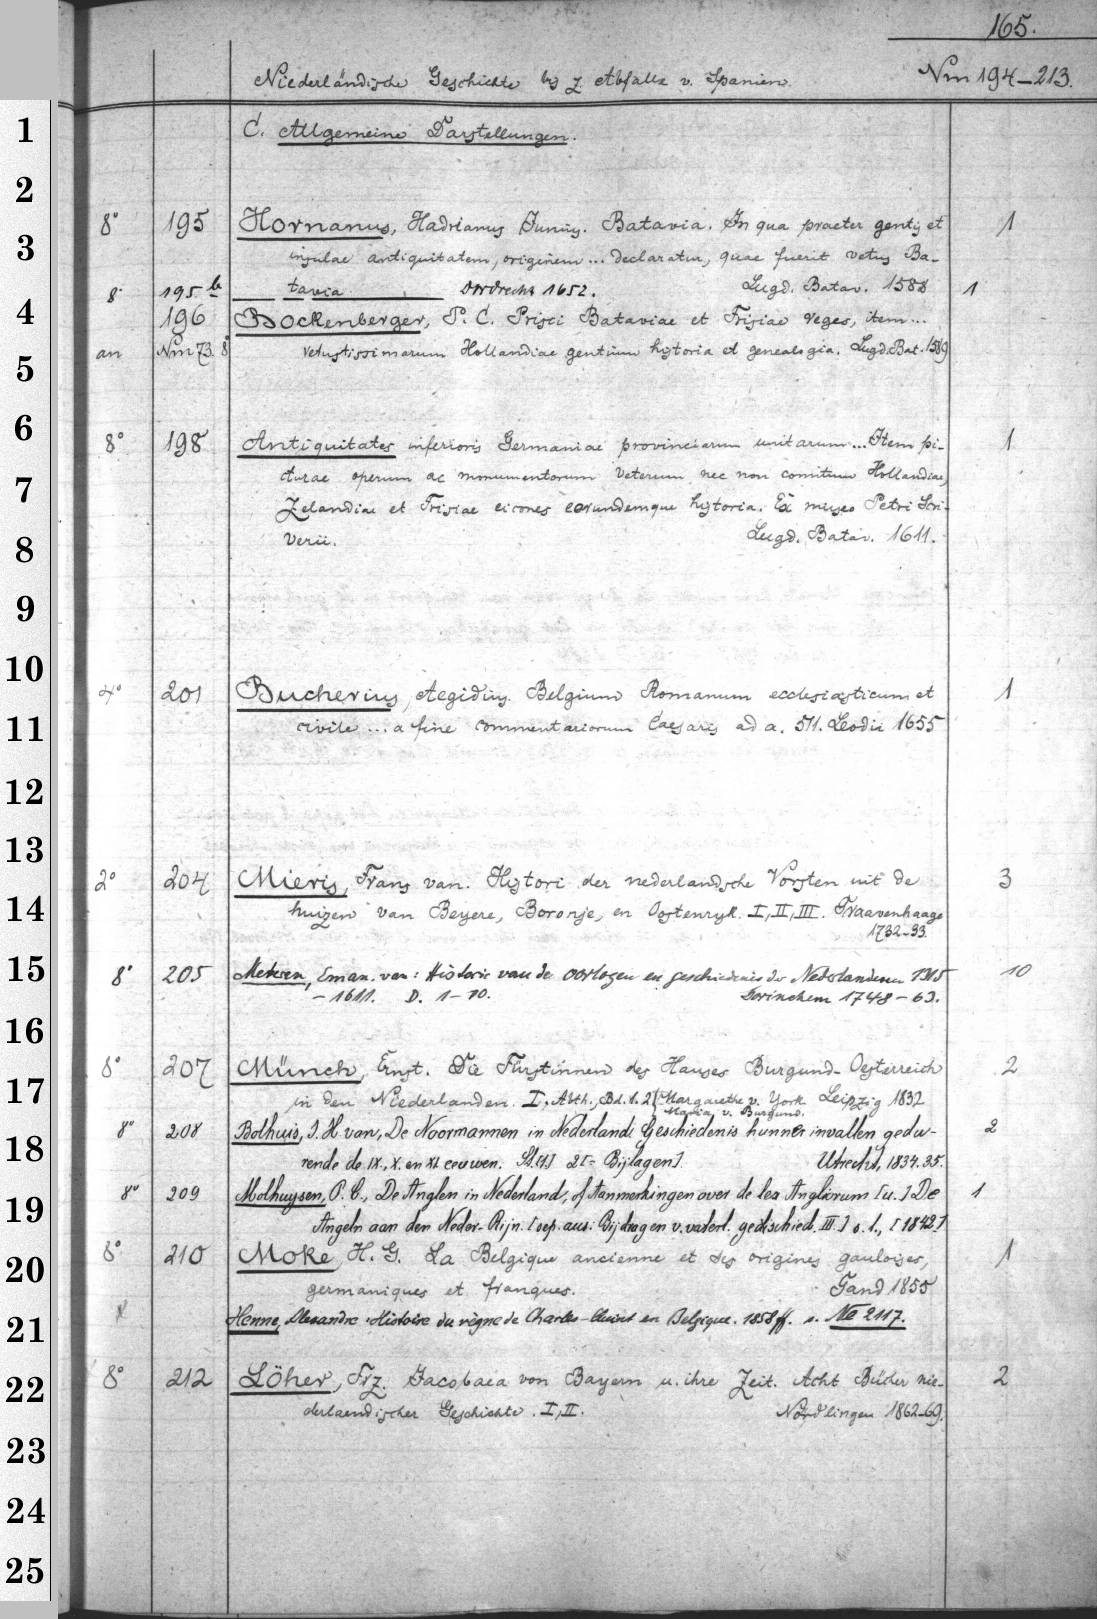 165.
Niederländische Geschichte bis z. Abfalle v. Spanien. Nm 194-213.
1 C. Allgemeine Darstellungen.
2
8° 195 Hornanus, Hadrianus Junius. Batavia. In qua praeter gentis et 1
3 insulae antiquitatem, originem ... declaratur, quae fuerit vetus Ba-
tavia Lugd. Batav. 1588
8° 195 b Dordrecht 1652. 1
4 196 Bockenberger, P. C. Prisci Bataviae et Frisiae reges, item ...
an Nm 73. 8° vetustissimarum Hollandiae gentium historia et genealogia. Lugd. Bat. 1589
5
6
8° 198 Antiquitates inferioris Germaniae provinciarum unitarum ... Item pi- 1
7 cturae operum ac monumentorum veterum nec non comitum Hollandiae,
Zelandiae et Frisiae eicones eorundemque historia. Ex museo Petri Scri-
8 verii. Lugd. Batav. 1611.
9
10
4° 201 Bucherius, Aegidius. Belgium Romanum ecclesiasticum et 1
11 civile ... a fine commentariorum Caesaris ad a. 511. Leodii 1655
12
13
2° 204 Mieris, Frans van. Histori der nederlandsche Vorsten uit de 3
14 huizen van Beyere, Boronje, en Oostenryk. I, II, III. 'Graavenhaage
1732-33.
15 8° 205 Meteren, Eman. van: Historie van de oorlogen en geschiedenis der Nederlanderen 1315 10
- 1611. D. 1-10. Gorinchem 1748-63.
16
8° 207 Münch, Ernst. Die Fürstinnen des Hauses Burgund-Oesterreich 2
17 in den Niederlanden. I. Abth., Bd. 1. 2 [Margarethe v. York Leipzig 1832
Maria v. Burgund.
18 8° 208 Bolhuis, J. H. van, De Noormannen in Nederland: Geschiedenis hunner invallen gedu- 2
rende de IX., X. en XI. eeuwen. St. [1.] 2 [= Bijlagen]. Utrecht, 1834. 35.
8° 209 Molhuysen, P. C., De Anglen in Nederland, of Aanmerkingen over de lex Angliorum [u.] De 1
19 Angeln aan den Neder-Rijn. [sep. aus: Bijdragen v. vaderl. geschied. III.] o. l., [1842.]
8° 210 Moke, H. G. La Belgique ancienne et ses origines gauloises, 1
20 germaniques et franques. Gand 1855
21 Henne, Alexandre. Histoire du règne de Charles-Quint en Belgique. 1858 ff. s. Ne 2117.
22 8° 212 Löher, Frz. Jacobaea von Bayern u. ihre Zeit. Acht Bücher nie- 2
derlaendischer Geschichte. I, II. Nördlingen 1862-69.
23
24
25